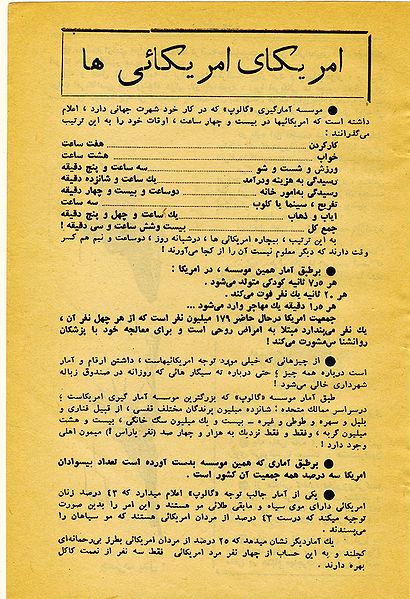 امریکای امریکائی ها
● موسسه آمارگیری «گالوپ» که در کار خود شهرت جهانی دارد ، اعلام
داشته است که امریکائیها در بیست و چهار ساعت ، اوقات خود را به این ترتیب
می‌گذرانند :
کارکردن هفت ساعت
خواب هشت ساعت
ورزش و شست و شو سه ساعت و پنج دقیقه
رسیدگی به هزینه و درآمد یك ساعت و شانزده دقیقه
رسیدگی به‌امور خانه دوساعت و بیست و چهار دقیقه
تفریح ، سینما یا کلوب سه ساعت
ایاب و ذهاب یك ساعت و چهل و پنج دقیقه
جمع کل بیست وشش ساعت و سی دقیقه !
به این ترتیب ، بیچاره امریکائی ها ، درشبانه روز ، دوساعت و نیم هم کسر
وقت دارند که دیگر معلوم نیست آن را از کجا می‌آورند !
● برطبق آمار همین موسسه ، در امریکا :
هر ۷ر۵ ثانیه کودکی متولد می‌شود.
هر ۲۰ ثانیه یك نفر فوت می‌کند .
هر ۱ر۵ دقیقه یك مهاجر وارد می‌شود ...
جمعیت امریکا درحال حاضر ۱۷۹ میلیون نفر است که از هر چهل نفر آن ،
یك نفر می‌پندارد مبتلا به امراض روحی است و برای معالجه خود با پزشکان
روانشناس مشورت می‌کند !
● از چیزهائی که خیلی مورد توجه امریکائیهاست ، داشتن ارقام و آمار
است درباره همه چیز ؛ حتی درباره ته سیگار هائی که روزانه در صندوق زباله
شهرداری خالی می‌شود !
طبق آمار موسسه «گالوپ» که بزرگترین موسسه آمار گیری امریکاست ؛
درسراسر ممالك متحده : شانزده میلیون پرندگان مختلف قفسی ، از قبیل قناری و
بلبل و سهره و طوطی و غیره ــ بیست و یك میلیون سگ خانگی ، بیست و هشت
میلیون گربه ، وفقط و فقط نزدیك به هزار و چهار صد (نفر یاراس !) میمون اهلی
وجود دارد !
● برطبق آماری که همین موسسه بدست آورده است تعداد بیسوادان
امریکا سه درصد همه جمعیت آن کشور است .
● یکی از آمار جالب توجه «گالوپ» اعلام میدارد که ۴۳ درصد زنان
امریکائی دارای موی سیاه و مابقی طلائی مو هستند و این امر را بدین صورت
توجیه میکند که درست ۴۳ درصد از مردان امریکائی هستند که مو سیاهان را
می‌پسندند .
یك آماردیگر نشان میدهد که ۲۵ درصد از مردان امریکائی بطرز بی‌رحمانه‌ای
کچلند و به این حساب از چهار نفر مرد امریکائی فقط سه نفر از نعمت کاکل
بهره دارند .